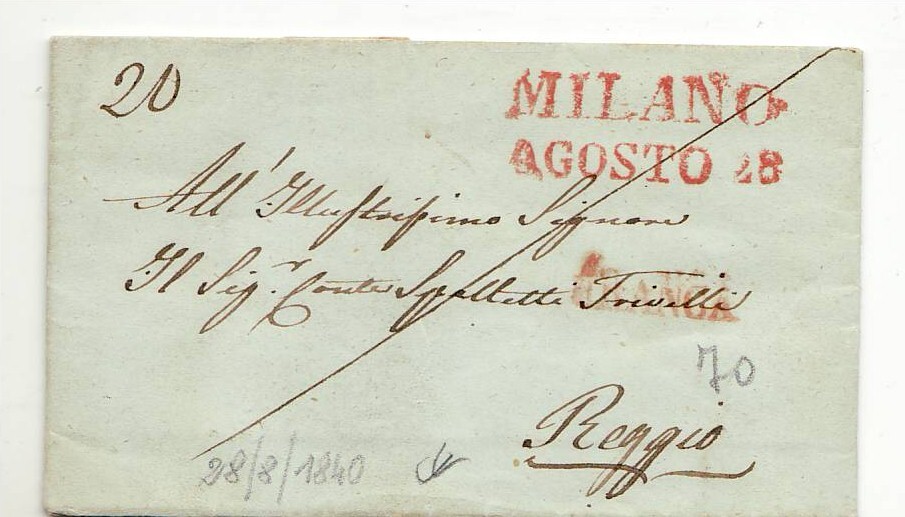 20
MILANO
AGOSTO 28
All' Illustrissimo Signore
Il Sig.r Conte Spalletti Trivelli
70
Reggio
28/8/1840